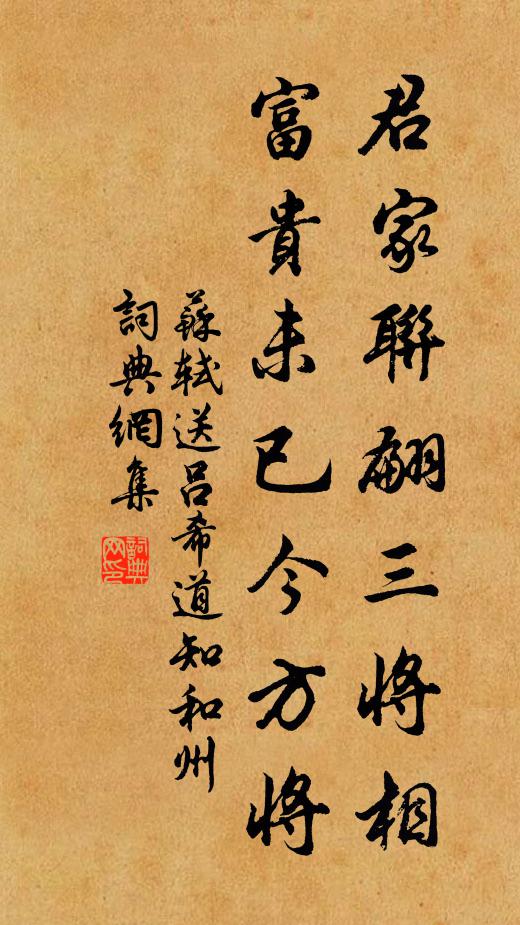 君家聯翩三將相
富貴未已今方將
蘇軾送呂希道知和州
詞典網集
詞典網印